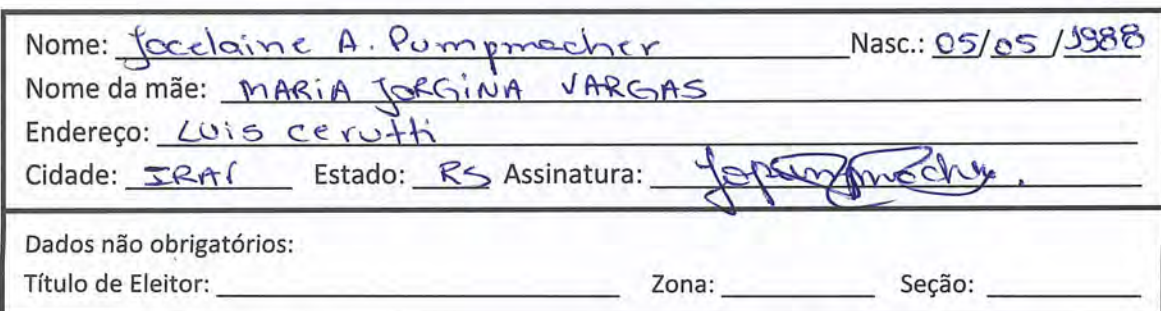 Nome: Jocelaine A. Pumpmacher Nasc.: 05/05/1988
Nome da mãe: MARIA JORGINA VARGAS
Endereço: Luis cerutti
Cidade: IRAÍ Estado: RS Assinatura: Jopumpmacher.
Dados não obrigatórios:
Título de Eleitor: Zona: Seção: